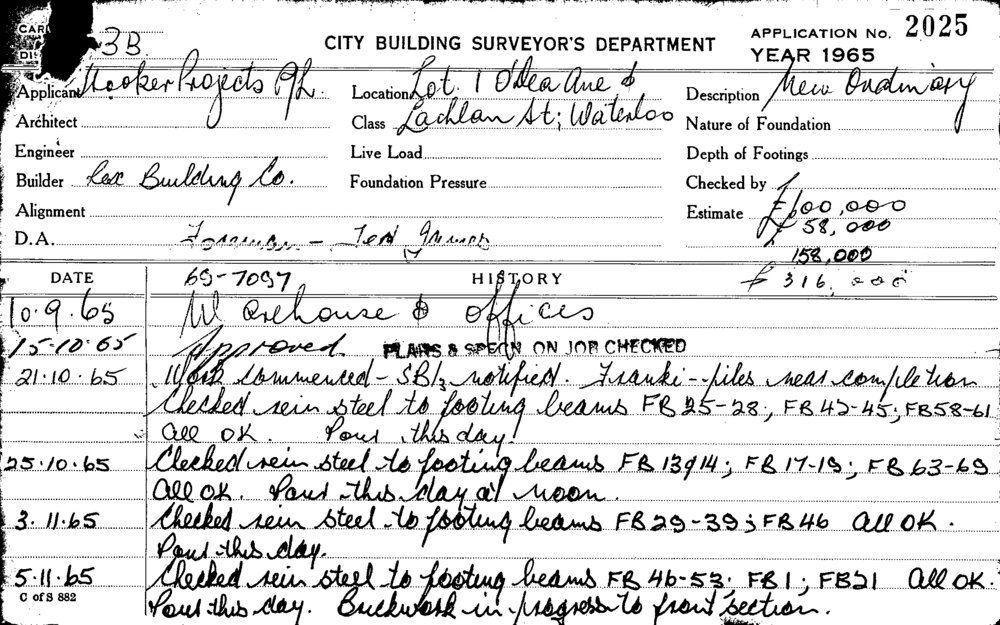 3B
CITY BUILDING SURVEYOR'S DEPARTMENT
APPLICATION No. 2025
YEAR 1965
Applicant Hooker Projects P/L.
Location Lot. 1 O'Dea Ave &
Description New Ordinary
Architect
Class Lachlan St; Waterloo
Nature of Foundation
Engineer
Live Load
Depth of Footings
Builder Rex Building Co.
Foundation Pressure
Checked by
Alignment
Estimate £100,000
£ 58,000
D.A. Foreman - Ted
158,000
DATE 65-7097 HISTORY £ 316,000
10.9.65 Warehouse & offices
15.10.65 Approved. PLANS & SPECN ON JOB CHECKED
21.10.65 Work commenced - SB1/3 notified. Franki-piles near completion
Checked rein steel to footing beams FB 25-28; FB 42-45; FB 58-61
All OK. Pour this day.
25.10.65 Checked rein steel to footing beams FB 13914; FB 17-19; FB 63-69
All OK. Pour this day at noon.
3.11.65 Checked rein steel to footing beams FB 29-39; FB 46 All OK.
Pour this day.
5.11.65 Checked rein steel to footing beams FB 46-53; FB1; FB21 All OK.
C of S 882
Pour this day. Brickwork in progress to front section.